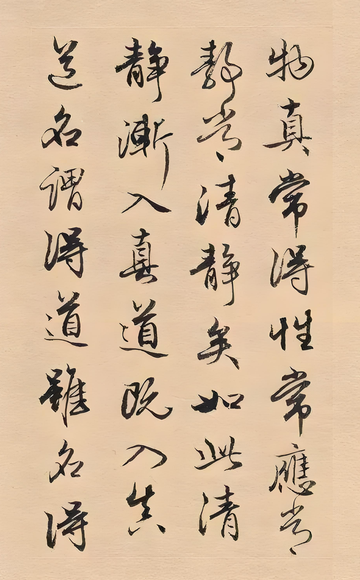 物真常得性常應常
靜常清靜矣如此清
靜漸入真道既入真
道名謂得道雖名得